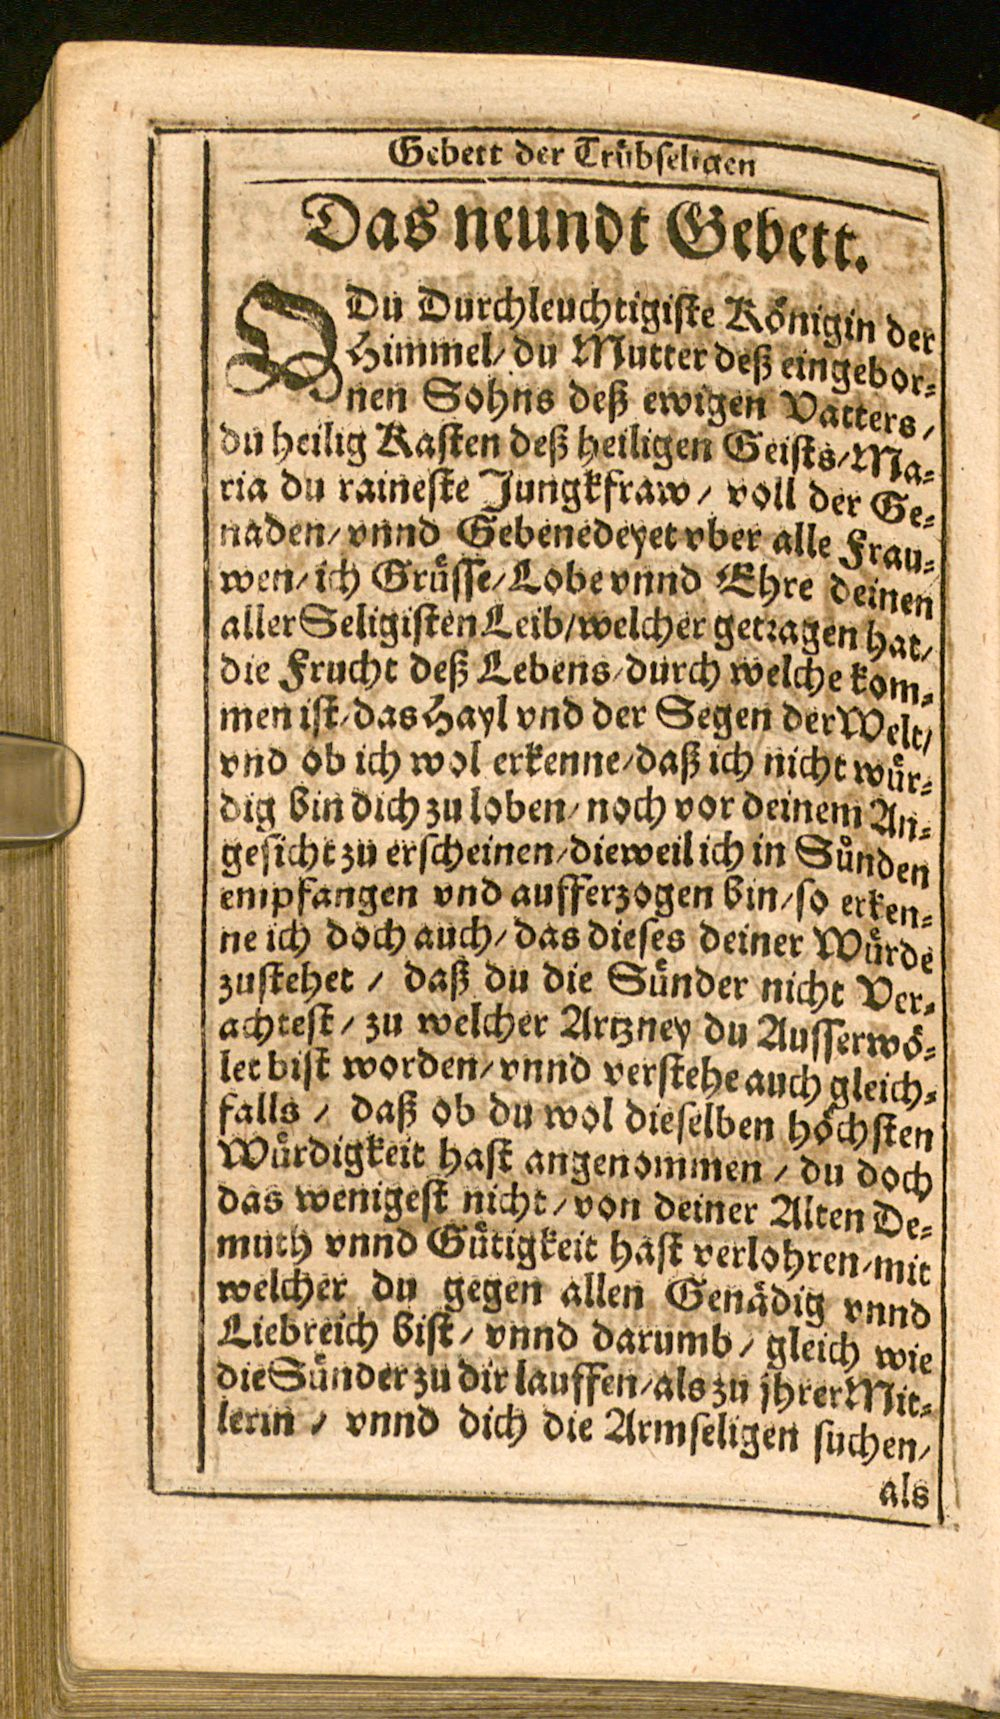 Gebett der Trübseligen
Das neundt Gebett.
O Du Durchleuchtigiste Königin der
Himmel/ du Mutter deß eingebor⸗
nen Sohns deß ewigen Vatters/
du heilig Kasten deß heiligen Geists/ Ma⸗
ria du raineste Jungkfraw/ voll der Ge⸗
naden/ vnnd Gebenedeyet vber alle Frau⸗
wen/ ich Grüsse/ Lobe vnnd Ehre deinen
aller Seligisten Leib/ welcher getragen hat/
die Frucht deß Lebens/ durch welche kom⸗
men ist/ das Hayl vnd der Segen der Welt/
vnd ob ich wol erkenne/ daß ich nicht wür⸗
dig bin dich zu loben/ noch vor deinem An⸗
gesicht zu erscheinen/ dieweil ich in Sünden
empfangen vnd aufferzogen bin/ so erken⸗
ne ich doch auch/ das dieses deiner Würde
zustehet/ daß du die Sünder nicht Ver⸗
achtest/ zu welcher Artzney du Ausserwö⸗
let bist worden/ vnnd verstehe auch gleich⸗
falls/ daß ob du wol dieselben höchsten
Würdigkeit hast angenommen/ du doch
das wenigest nicht/ von deiner Alten De⸗
muth vnnd Gütigkeit hast verlohren/ mit
welcher du gegen allen Genädig vnnd
Liebreich bist/ vnnd darumb/ gleich wie
die Sünder zu dir lauffen/ als zu jhrer Mit⸗
lerin/ vnnd dich die Armseligen suchen/
als